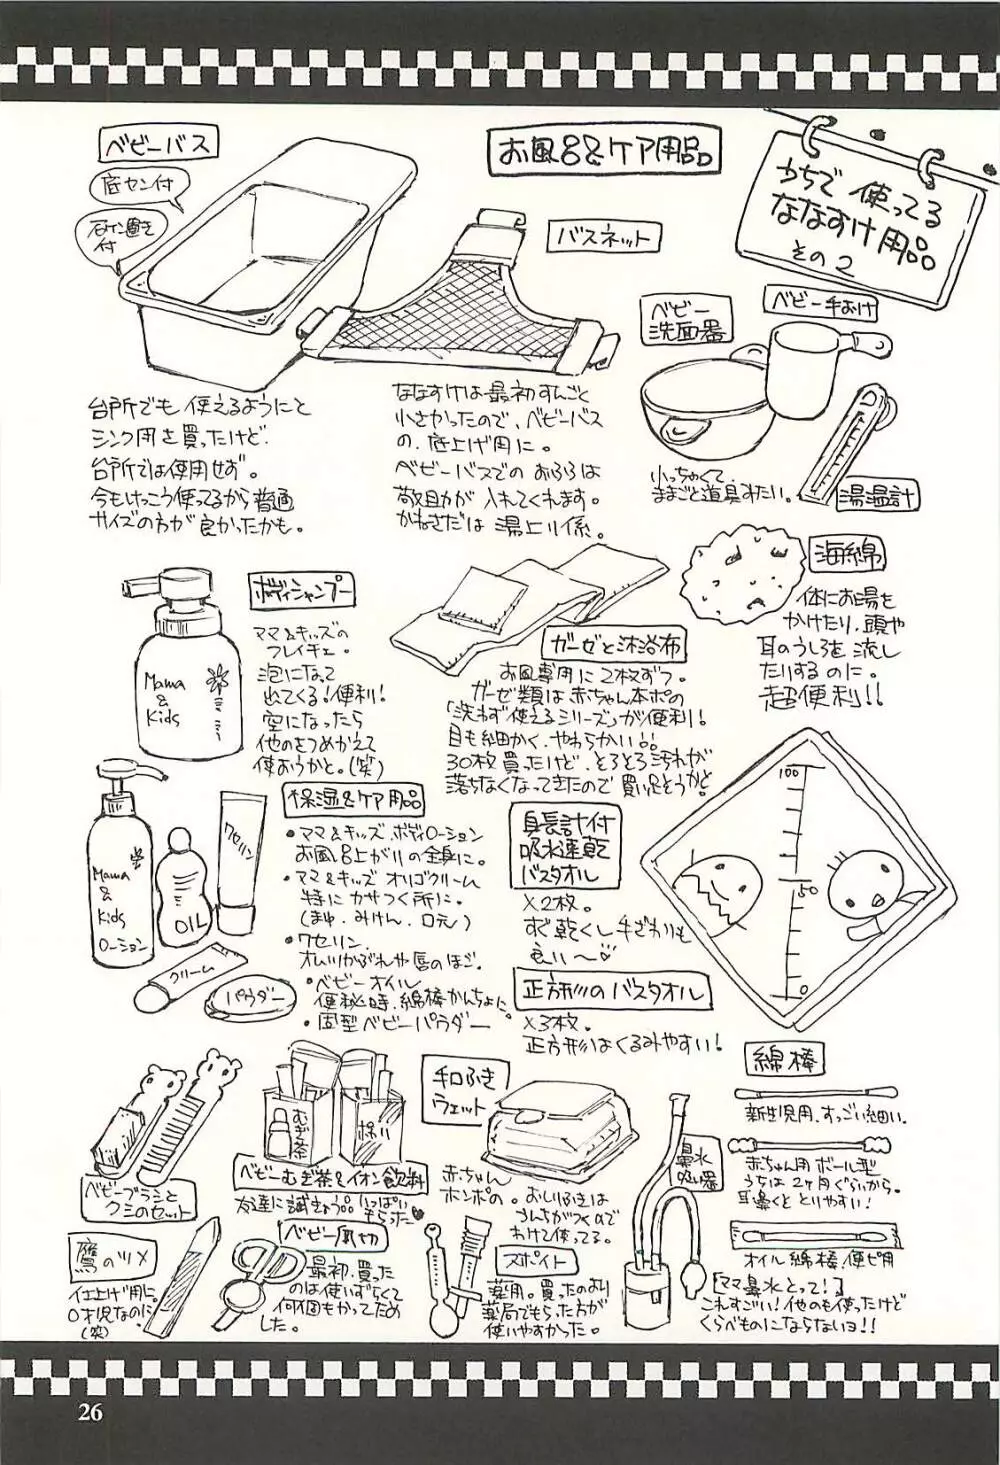 うちで使ってる
ななすけ用品
その2
お風呂&ケア用品
ベビーバス
底セン付
石ケン置き
付
台所でも使えるようにと
シンク用を買ったけど
台所では使用せず。
今もけっこう使ってるから普通
サイズの方が良かったかも。
バスネット
ななすけは最初すんごく
小さかったので、ベビーバス
の、底上げ用に。
ベビーバスでのおふろは
敬助が入れてくれます。
かねさだは湯上り係。
ベビー
洗面器
ベビー手おけ
小っちゃくて、
ままごと道具みたい。
湯温計
海綿
体にお湯を
かけたり、頭や
耳のうしろを流し
たりするのに。
超便利!!
ボディシャンプー
Mama
&
Kids
ママ&キッズの
フレイチェ。
泡になって
出てくる!便利!
空になったら
他のをつめかえて
使おうかと。(笑)
ガーゼと沐浴布
お風呂専用に2枚ずつ。
ガーゼ類は赤ちゃん本ポの
「洗わず使えるシリーズ」が便利!
目も細かく、やわらかい!!
30枚買ったけど、とろとろ汚れが
落ちなくなってきたので買い足そうかと。
保湿&ケア用品
Mama
&
Kids
ローション
OIL
ワセリン
クリーム
パウダー
・ママ&キッズ ボディローション
お風呂上がりの全身に。
・ママ&キッズ オリゴクリーム
特にカサつく所に。
(まゆ・みけん・口元)
・ワセリン、
オムツかぶれや唇のほご。
・ベビーオイル
便秘時、綿棒かんちょに。
・固型ベビーパウダー
身長計付
吸水速乾
バスタオル
×2枚。
すぐ乾くし手ざわりも
良い〜♡
100
50
0
正方形のバスタオル
×3枚。
正方形はくるみやすい!
ベビーブラシと
クシのセット
むぎ茶
ベビーむぎ茶&イオン飲料
友達に試きょう品いっぱい
もらった♥
手口ふき
ウェット
赤ちゃん
ホンポの。おしりふきは
うんちがつくので
わけて使ってる。
鼻水
吸い器
「ママ鼻水とって!」
これすごい!他のも使ったけど
くらべものにならないヨ!!
綿棒
新生児用、すっごい細い。
赤ちゃん用ボール型
うちは2ヶ月ぐらいから。
耳、鼻くととりやすい!
オイル綿棒、便ピ用
鷹のツメ
仕上げ用に。
0才児なのに
(笑)
ベビー爪切
最初、買った
のは使いずらくて
何個もかってため
した。
スポイト
薬用。買ったのより
薬局でもらった方が
使いやすかった。
26